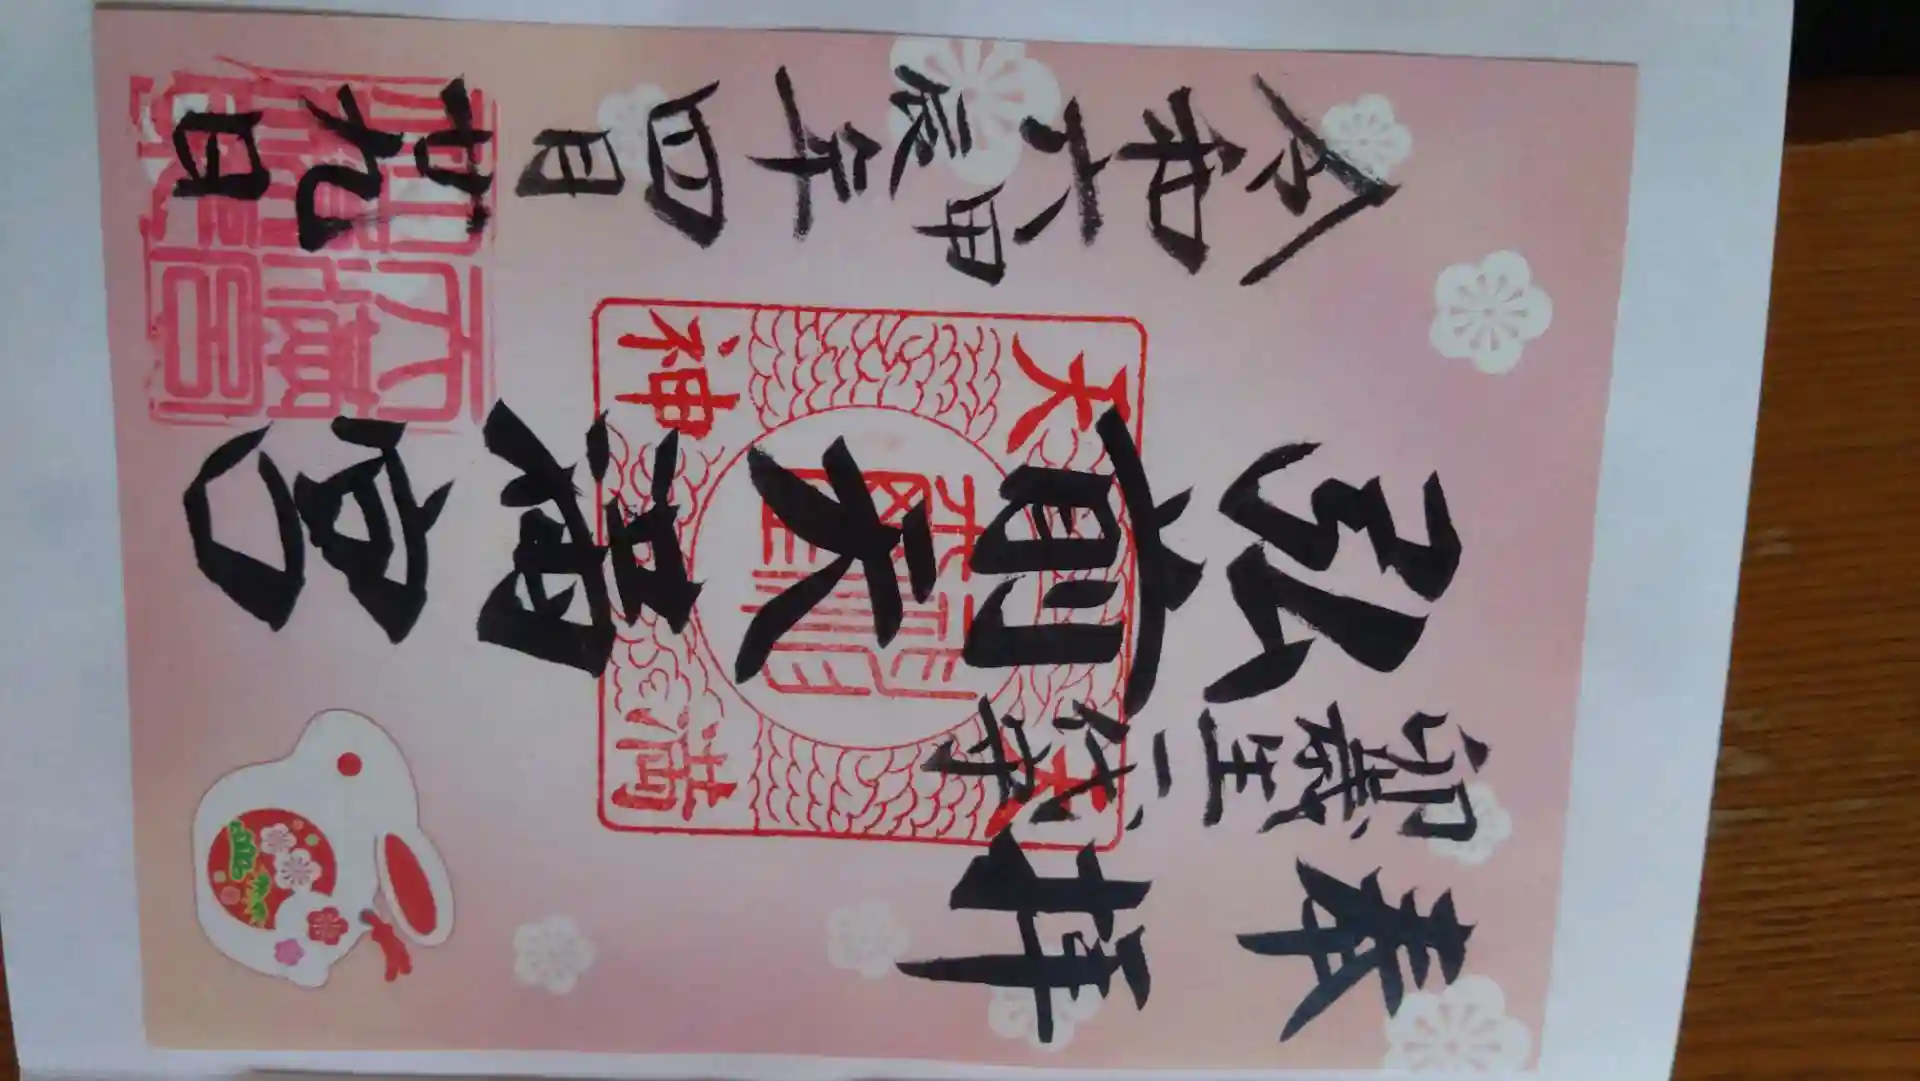 奉拝
卯歳生一代守
弘前天満宮
令和六甲辰年四月廿九日
天満
天神
天満宮